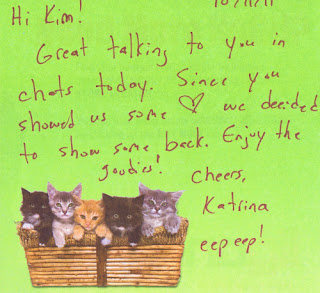 Hi Kim!
Great talking to you in
chats today. Since you
showed us some ♡ we decided
to show some back. Enjoy the
goodies!
cheers,
Katrina
eep eep!